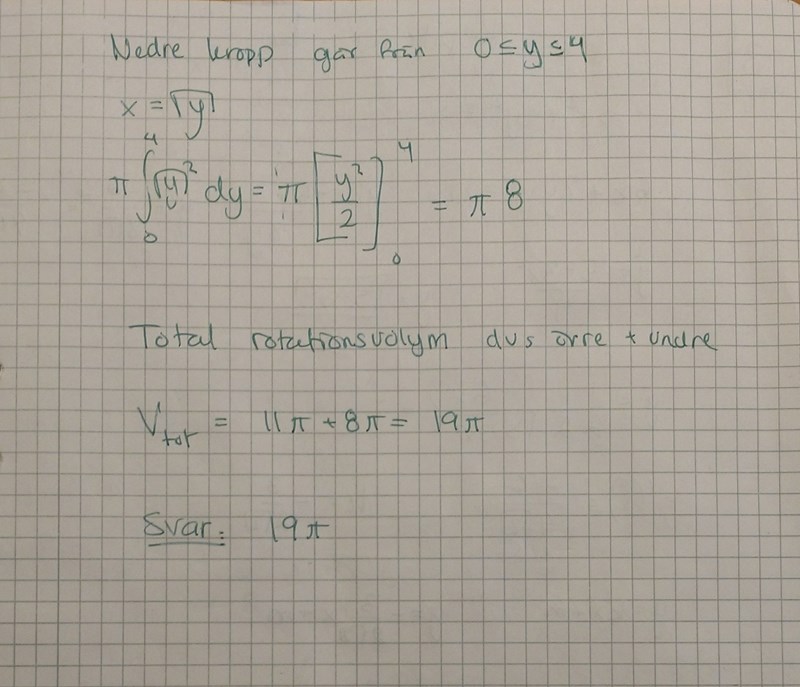 Nedre kropp går från 0 ≤ y ≤ 4
x = √y
π ∫₀⁴ (√y)² dy = π [y²/2]₀⁴ = π 8
Total rotationsvolym dvs övre + undre
V_tot = 11π + 8π = 19π
Svar: 19π